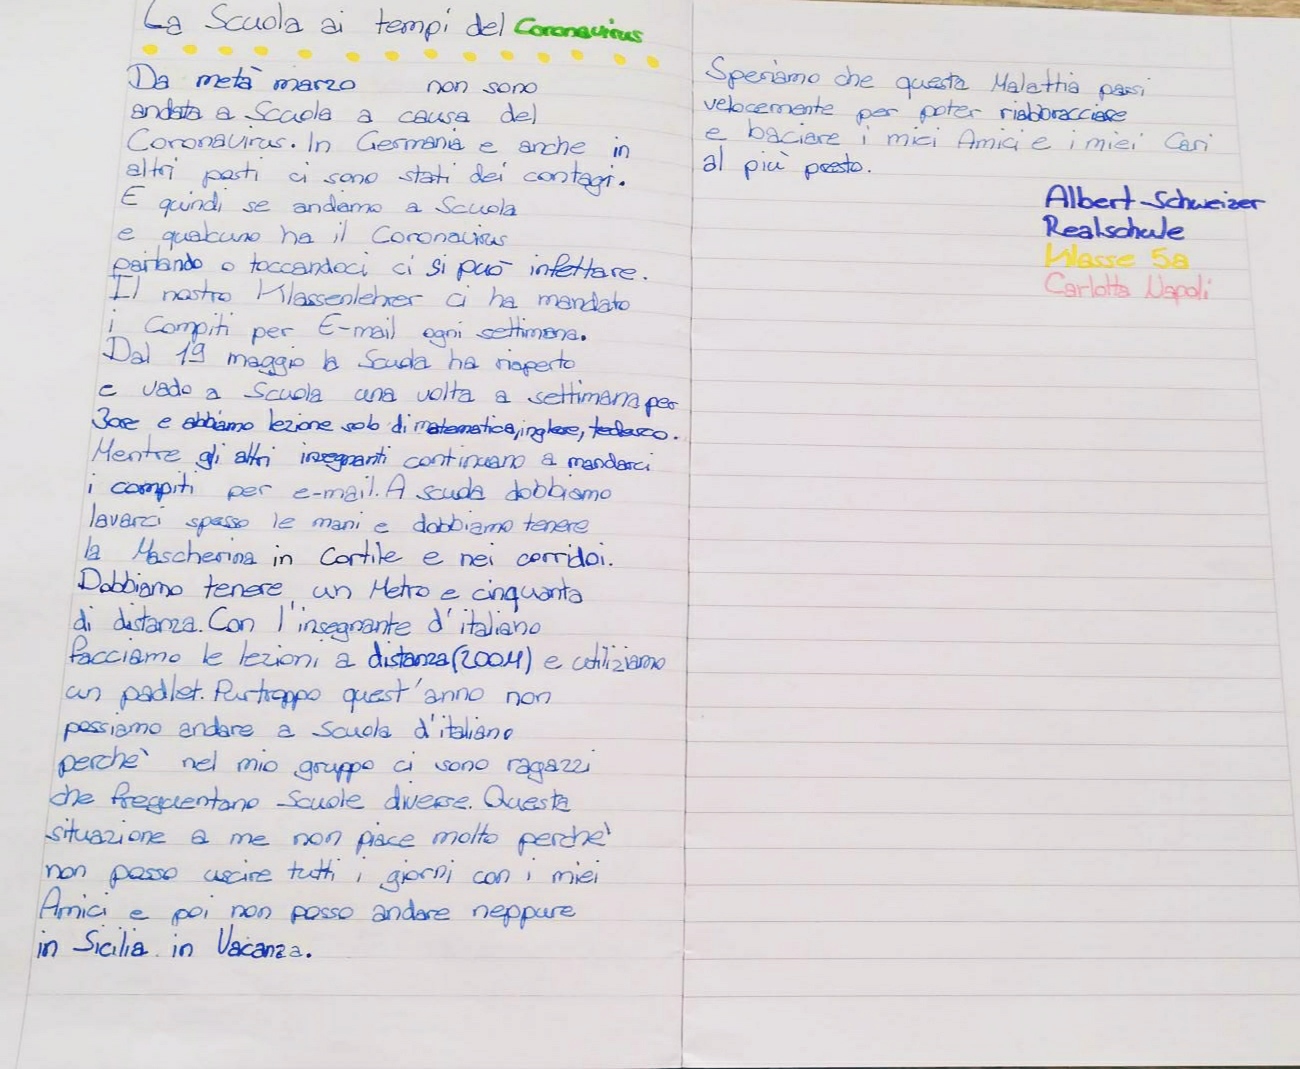 La Scuola ai tempi del Coronavirus
Da metà marzo non sono
andata a Scuola a causa del
Coronavirus. In Germania e anche in
altri posti ci sono stati dei contagi.
E quindi se andiamo a Scuola
e qualcuno ha il Coronavirus
parlando o toccandoci ci si può infettare.
Il nostro Klassenlehrer ci ha mandato
i Compiti per E-mail ogni settimana.
Dal 19 maggio la Scuola ha riaperto
e vado a Scuola una volta a settimana per
3ore e abbiamo lezione solo di matematica, inglese, tedesco.
Mentre gli altri insegnanti continuano a mandarci
i compiti per e-mail. A scuola dobbiamo
lavarci spesso le mani e dobbiamo tenere
la Mascherina in Cortile e nei corridoi.
Dobbiamo tenere un Metro e cinquanta
di distanza. Con l'insegnante d'italiano
facciamo le lezioni a distanza (ZOOM) e utiliziamo
un padlet. Purtroppo quest'anno non
possiamo andare a Scuola d'italiano
perchè nel mio gruppo ci sono ragazzi
che frequentano Scuole diverse. Questa
situazione a me non piace molto perchè
non posso uscire tutti i giorni con i miei
Amici e poi non posso andare neppure
in Sicilia in Vacanza.
Speriamo che questa Malattia passi
velocemente per poter riabbracciare
e baciare i miei Amici e i miei Cari
al più presto.
Albert-Schweizer
Realschule
Klasse 5a
Carlotta Napoli